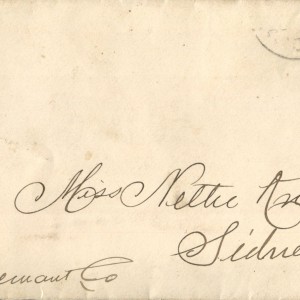 Miss Nettie Kn
Sidne
emont Co